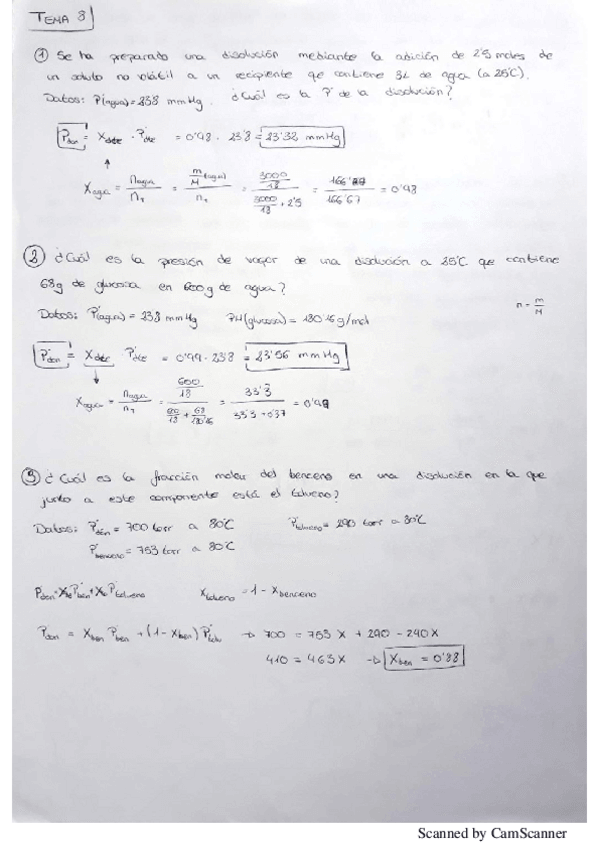 TEMA 8
① Se ha preparado una disolución mediante la adición de 2'5 moles de
un soluto no volátil a un recipiente que contiene 3L de agua (a 25°C).
Datos: P°(agua) = 23'8 mmHg. ¿Cuál es la P de la disolución?
P don = X dte · P° dte = 0'98 · 23'8 = 23'32 mmHg
↑
X agua = n agua / n T = m/M (agua) / n T = (3000/18) / (3000/18 + 2'5) = 166'67 / 166'67 = 0'98
② ¿Cuál es la presión de vapor de una disolución a 25°C que contiene
68g de glucosa en 600g de agua?
n = m/M
Datos: P°(agua) = 23'8 mmHg PM(glucosa) = 180'16 g/mol
P don = X dte · P° dte = 0'99 · 23'8 = 23'56 mmHg
↓
X agua = n agua / n T = (600/18) / (600/18 + 68/180'16) = 33'3 / (33'3 + 0'37) = 0'99
③ ¿Cuál es la fracción molar del benceno en una disolución en la que
junto a este componente está el tolueno?
Datos: P don = 700 torr a 80°C P° tolueno = 290 torr a 80°C
P° benceno = 753 torr a 80°C
P don = X b P° ben + X t P° tolueno X tolueno = 1 - X benceno
P don = X ben P° ben + (1 - X ben) P° tolu → 700 = 753 X + 290 - 290X
410 = 463 X → X ben = 0'88
Scanned by CamScanner